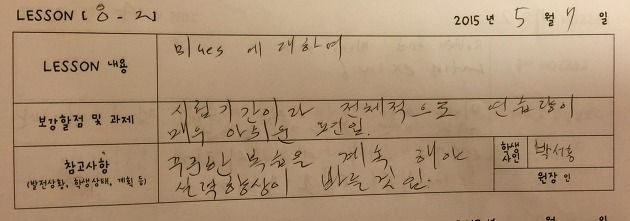 LESSON [ 8 - 2 ] 2015 년 5 월 7 일
LESSON 내용
Blues 에 대하여
보강할점 및 과제
시험기간이라 전체적으로 연습량이
매우 아쉬운 요인임.
참고사항
(발전상황, 학생상태, 계획 등)
꾸준한 복습은 계속 해야
실력향상이 빠를것 임.
학생
사인
박서홍
원장 인